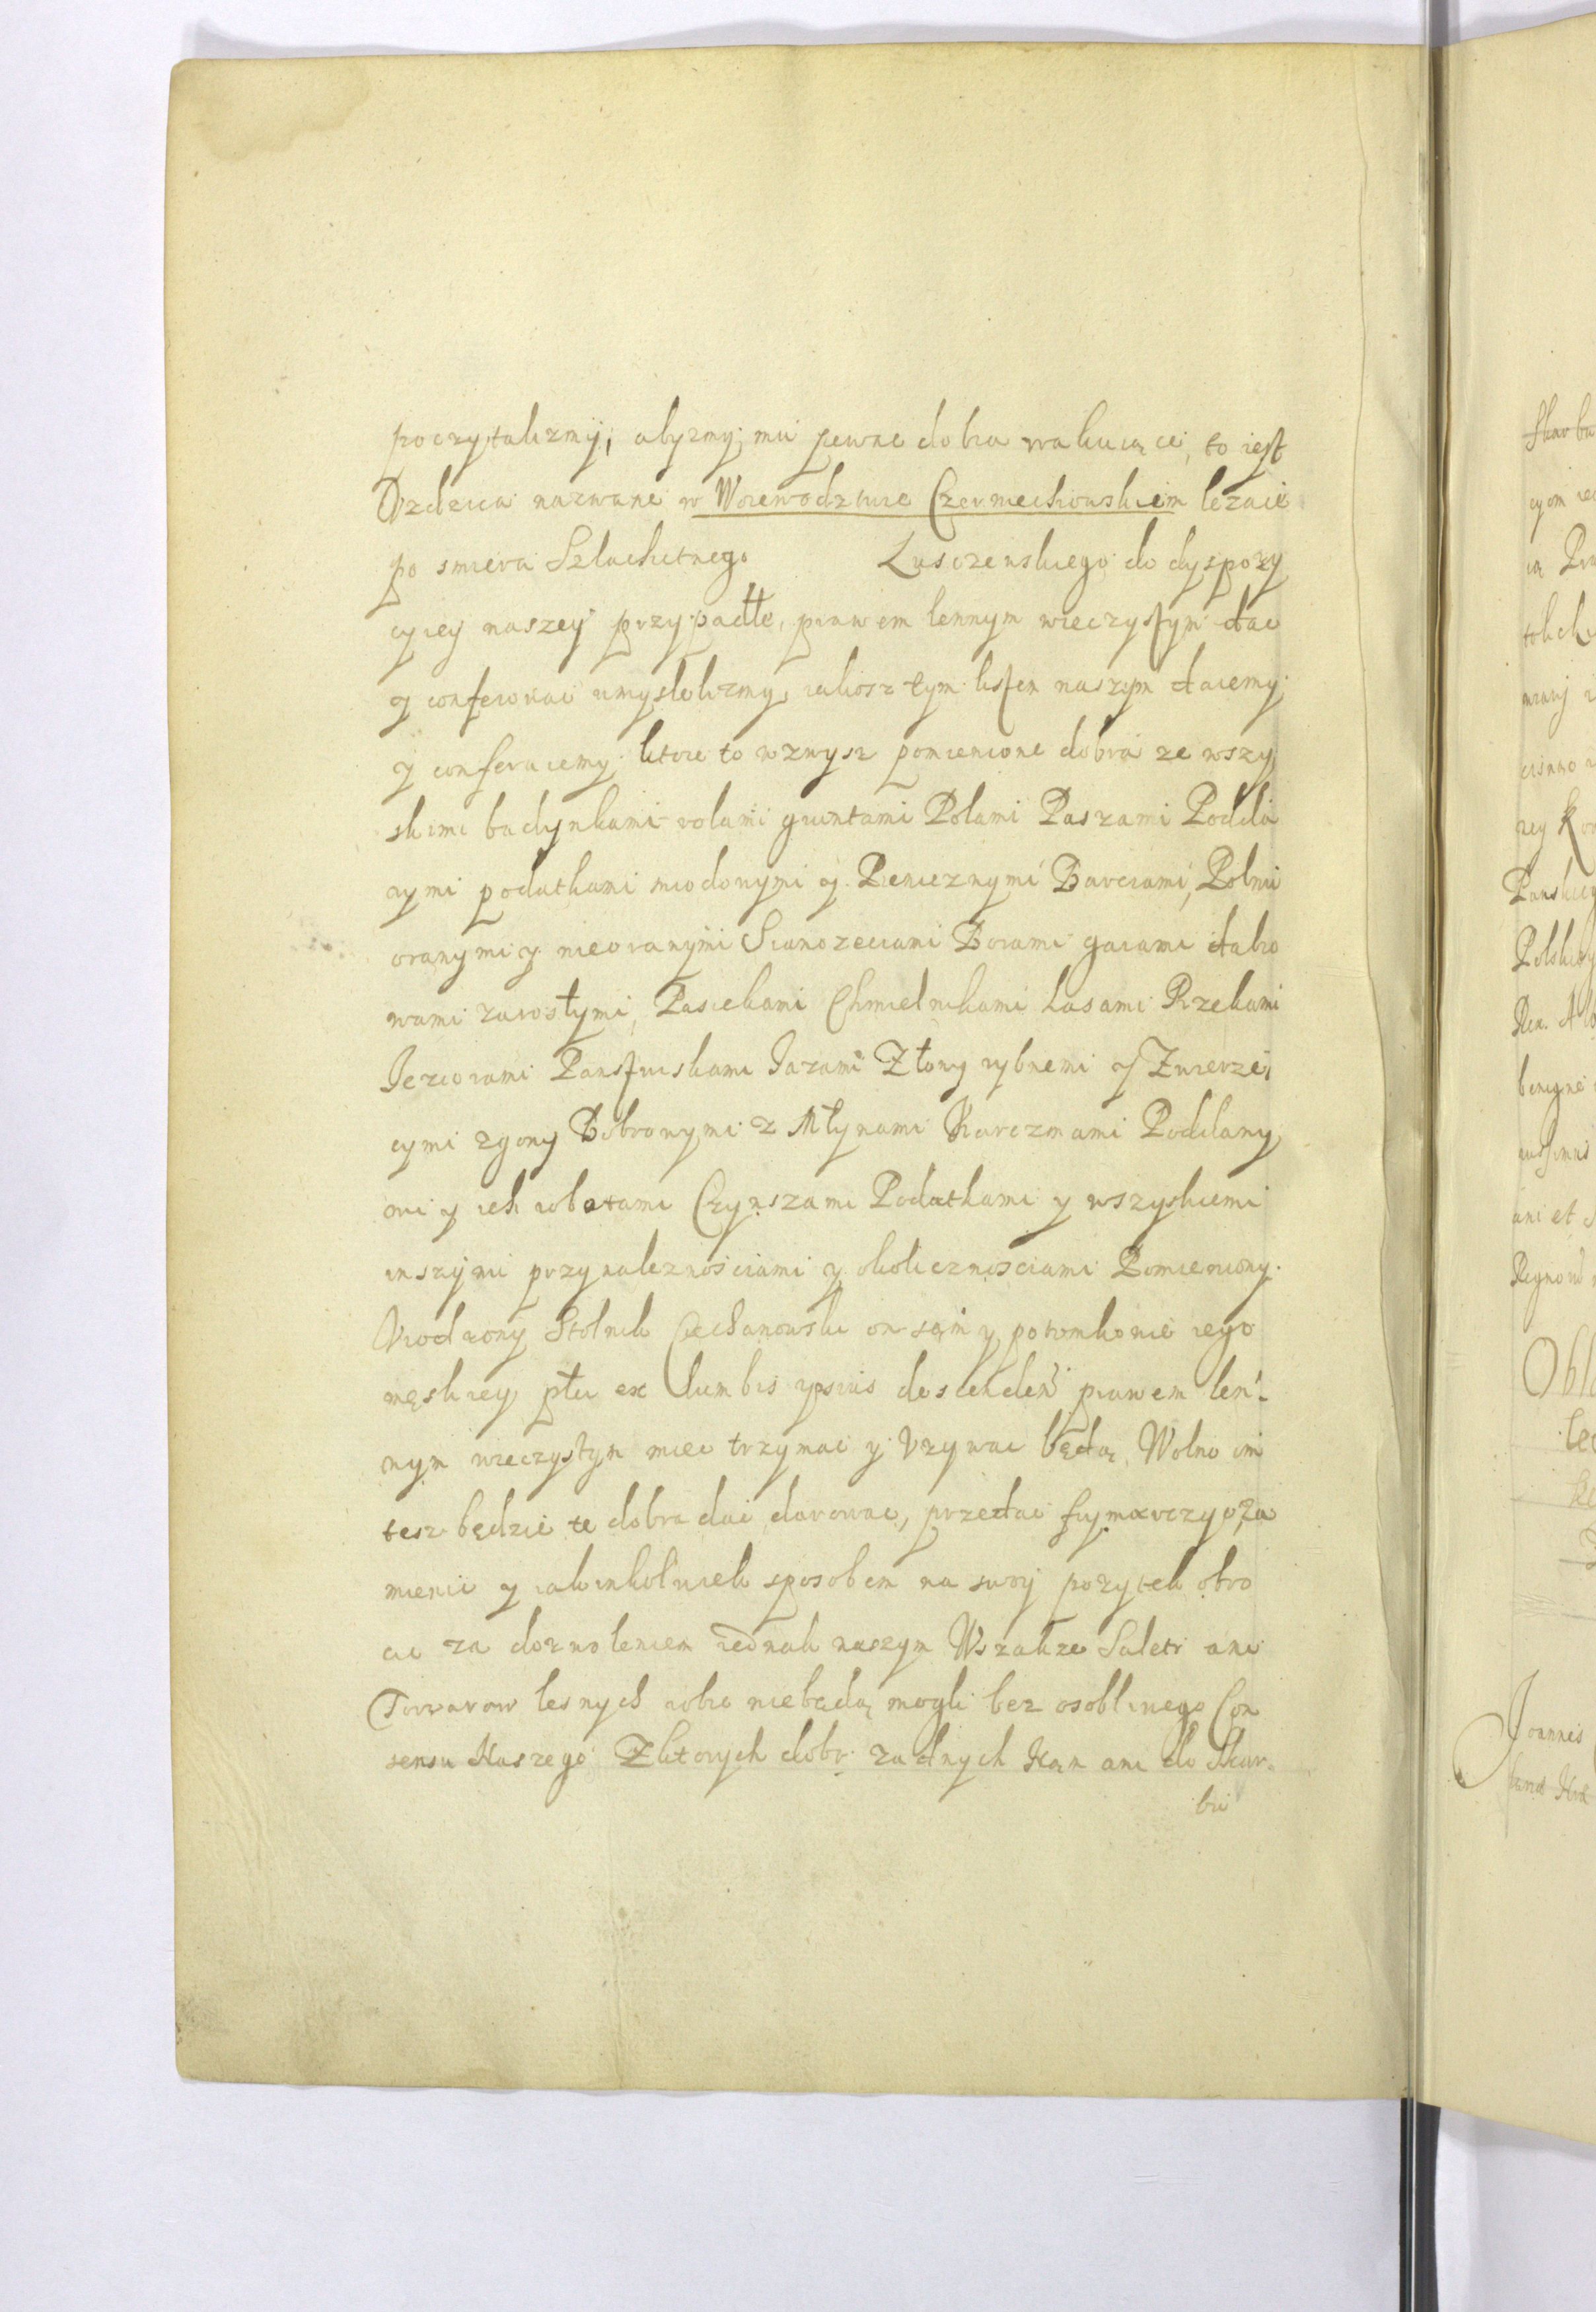 poczytalizmy, abyzmy mu pewne dobra wakuiące, to iest
Uzdzica nazwane w Woiewodztwie Czerniechowskiem lezące
po smierci Szlachetnego Lusczenskiego do dyspozy
cyiey naszey przypadłe, prawem lennym wieczystym dac
y conferowac umyslelizmy, iakosz tym listem naszym daiemy
y conferuiemy. ktore to wzwysz pomienione dobra ze wszy
skimi budynkami rolami gruntami Polami Paszami Podda
nymi podatkami miodowymi y Pienieznymi Barciami, Polmi
oranymi y nieoranymi Sianozeciami Borami gaiami dabro
wami zarostymi, Pasiekami Chmielnikami Lasami Rzekami
Jeziorami Pansfuiskami Jazami Złowy rybnemi y Zwierze
cymi zgony Bobrowymi z Młynami Karczmami Poddany
mi y ich robotami Czynszami Podatkami y wszyskiemi
inszymi przynaleznosciami y okolicznosciami Pomieniony
Urodzony Stolnik Ciechanowski on sam y potomkowie iego
męskiey płci ex lumbis ipsius descenden prawem len-
nym wieczystym miec trzymac y Uzywac będą, Wolno im
tesz będzie te dobra dac darowac, przedac frymarczyc, za
mienic y iakimkolwiek sposobem na swoy pozytek obro
cic za dozwoleniem iednak naszym Wszakze Saletr ani
Towarow lesnych robic niebędą mogli bez osobliwego Con
sensu Naszego Zktorych dobr zadnych Nam ani do Skar
bu
Skarbu
Pansk
Polskiey
benigne
ani et
Regno
Joannes